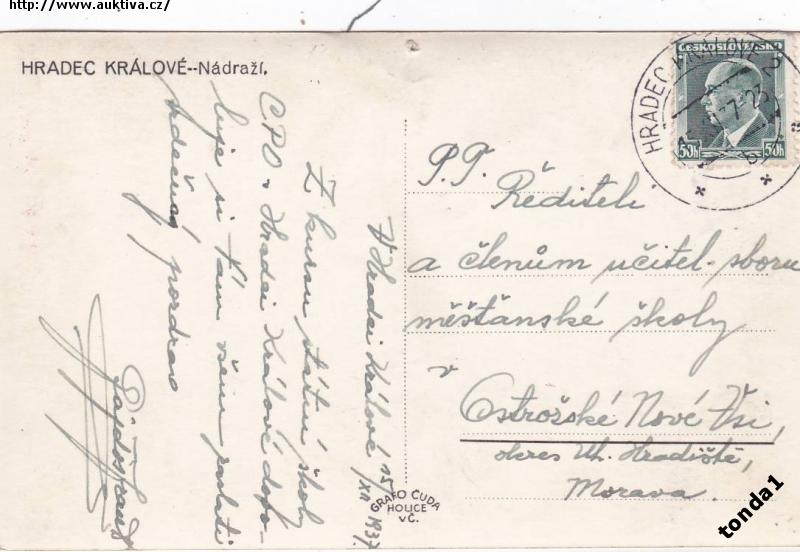 http://www.auktiva.cz/
HRADEC KRÁLOVÉ--Nádraží.
V Hradci Králové 15/XII 1937.
Z kursu státní školy
CPO v Hradci Králové dovo-
luje si Vám všem poslati
srdečný pozdrav
HRADEC KRÁLOVÉ 3
ČESKOSLOVENSKO
50h 50h
P.T.
Řediteli
a členům učitel. sboru
měšťanské školy
v
Ostrožské Nové Vsi,
okres Uh. Hradiště,
Morava.
GRAFO ČUDA
HOLICE
v Č.
tonda1